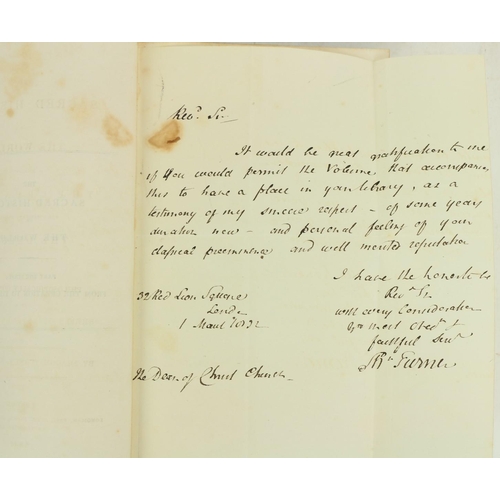 Revd. Sir
It would be great gratification to me
if you would permit the Volume, that accompanies
this to have a place in your library, as a
testimony of my sincere respect - of some years
duration now - and personal feeling of your
classical preeminence and well merited reputation
I have the honor to be
Revd. Sr.
32 Red Lion Square
with every Consideration
London
Yr. most Obedt. &
1 March 1832
faithful Servt.
Turner
The Dean of Christ Church -